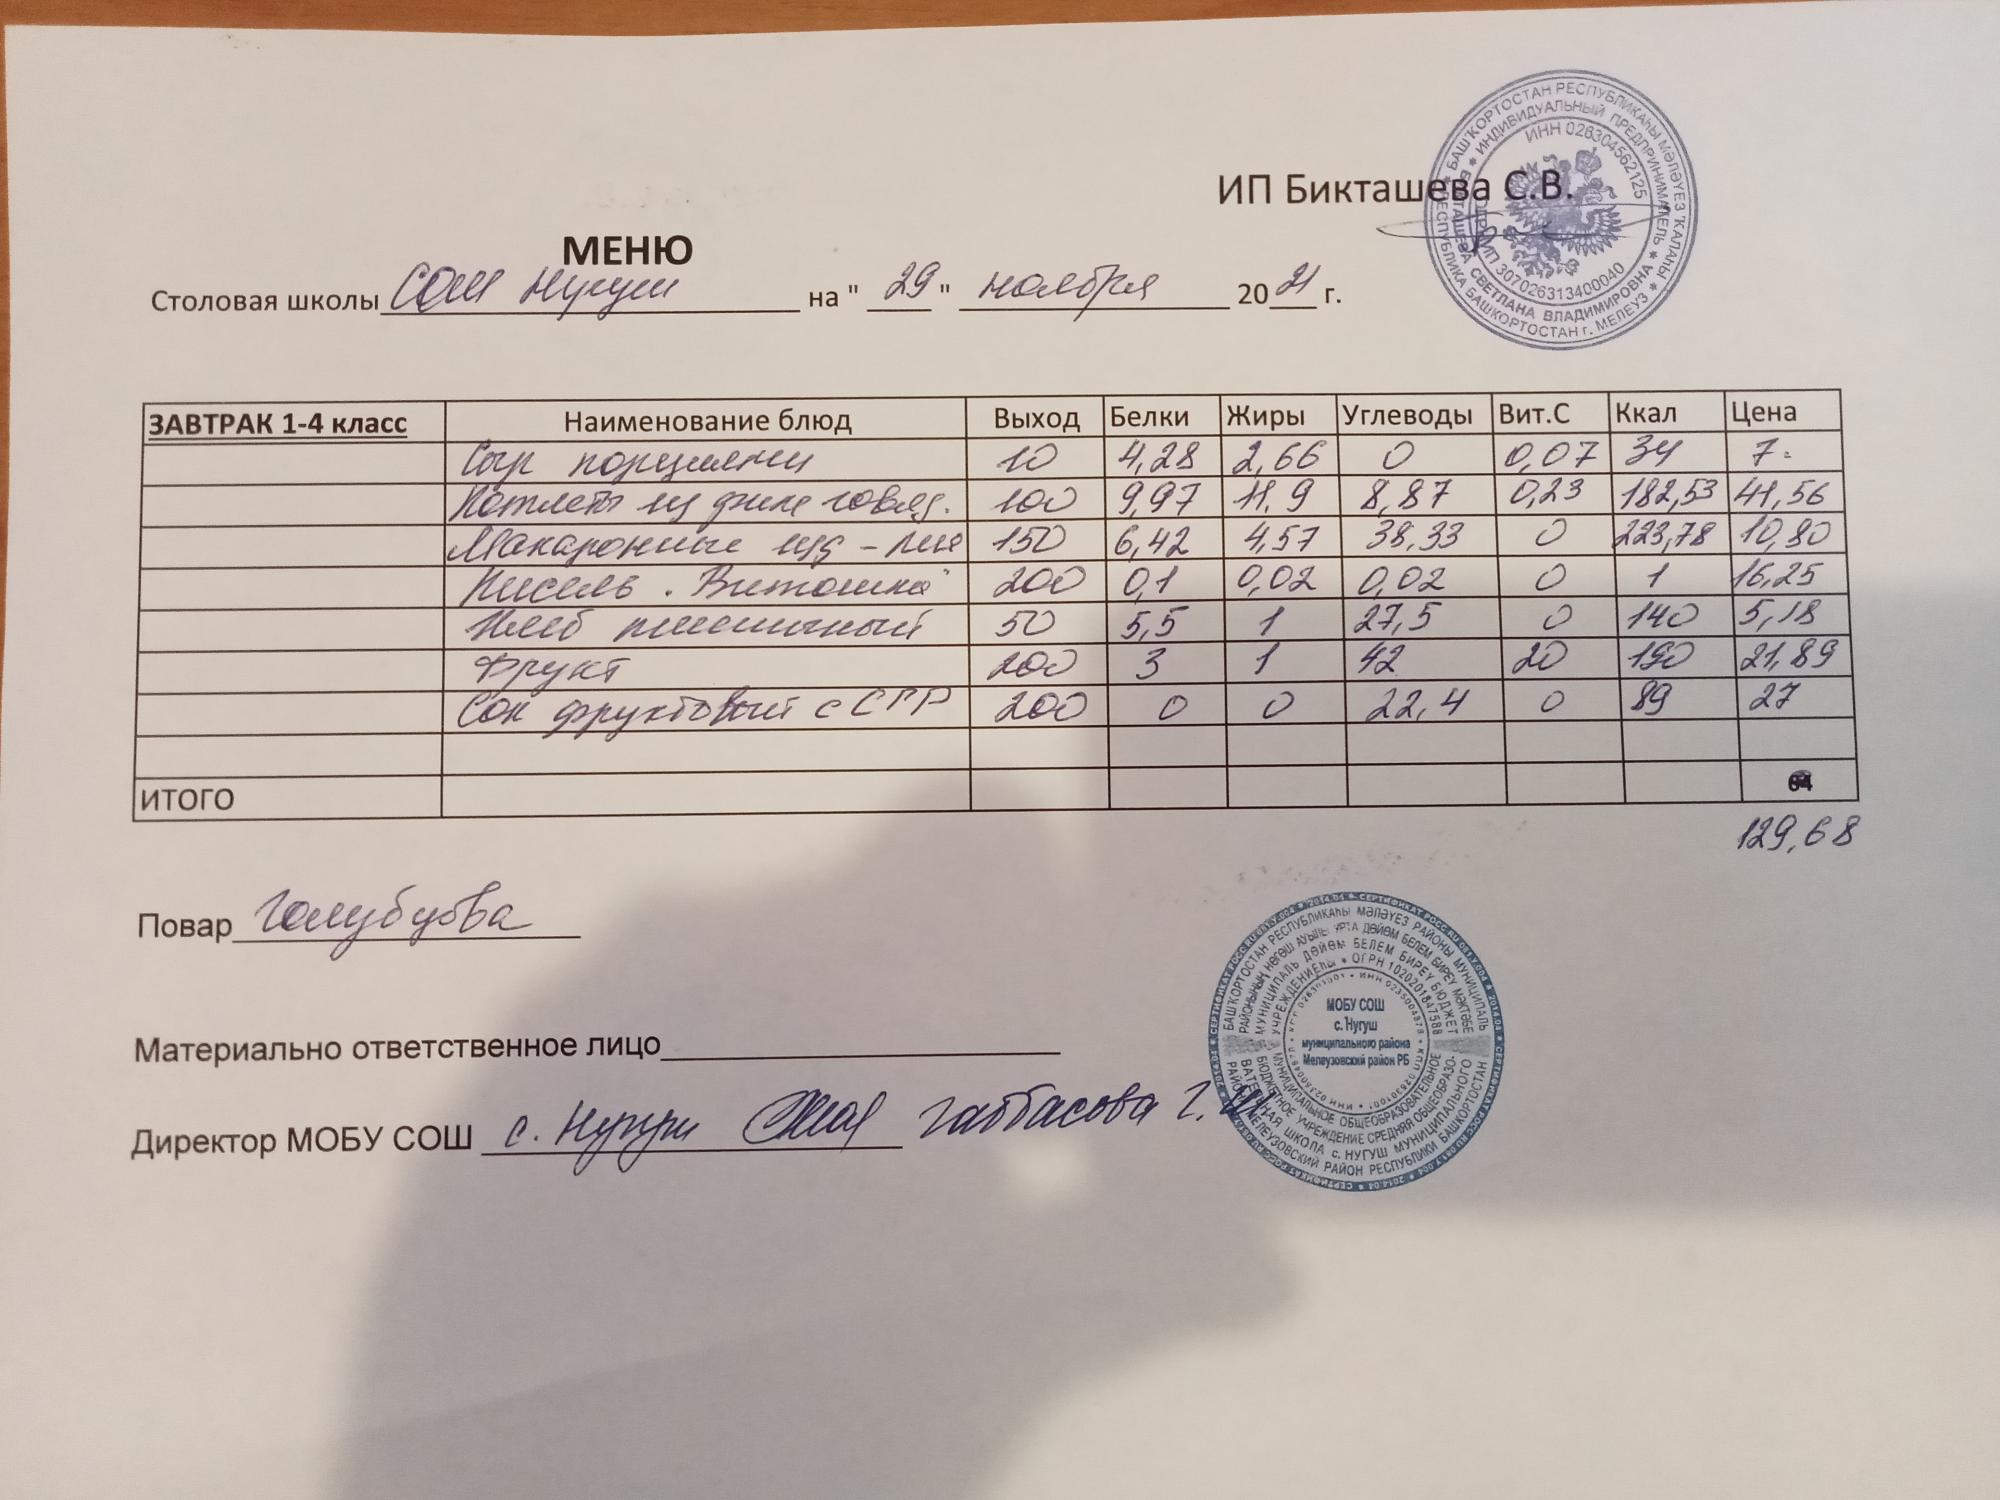 ИП Бикташева С.В.
БАШҠОРТОСТАН РЕСПУБЛИКАҺЫ МӘЛӘҮЕЗ ҠАЛАҺЫ * РЕСПУБЛИКА БАШКОРТОСТАН г. МЕЛЕУЗ *
ИНДИВИДУАЛЬНЫЙ ПРЕДПРИНИМАТЕЛЬ * БИКТАШЕВА СВЕТЛАНА ВЛАДИМИРОВНА *
ИНН 026304562125
ОГРНИП 307026313400040
МЕНЮ
Столовая школы СОШ Нугуш на " 29 " ноября 2021 г.
ЗАВТРАК 1-4 класс Наименование блюд Выход Белки Жиры Углеводы Вит.С Ккал Цена
Сыр порциями 10 4,28 2,66 0 0,07 34 7-
Котлеты из филе говяд. 100 9,97 11,9 8,87 0,23 182,53 41,56
Макаронные изд-лия 150 6,42 4,57 38,33 0 223,78 10,80
Кисель "Витошка" 200 0,1 0,02 0,02 0 1 16,25
Хлеб пшеничный 50 5,5 1 27,5 0 140 5,18
Фрукт 200 3 1 42 20 190 21,89
Сок фруктовый с СГР 200 0 0 22,4 0 89 27
ИТОГО 64
129,68
Повар Голубцова
Материально ответственное лицо
Директор МОБУ СОШ с. Нугуш Габбасова Г.
МОБУ СОШ
с. Нугуш
муниципального района
Мелеузовский район РБ